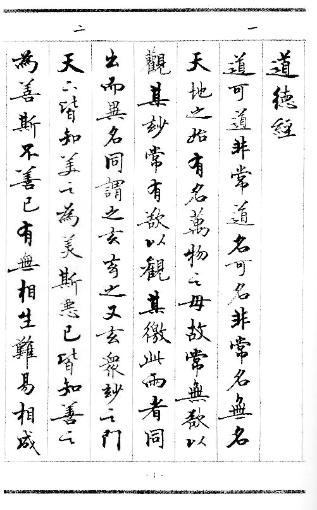 一
二
道德經
道可道非常道名可名非常名無名
天地之始有名萬物之母故常無欲以
觀其玅常有欲以觀其徼此兩者同
出而異名同謂之玄玄之又玄衆玅之門
天下皆知美之為美斯惡已皆知善之
為善斯不善已有無相生難易相成
· 1 ·